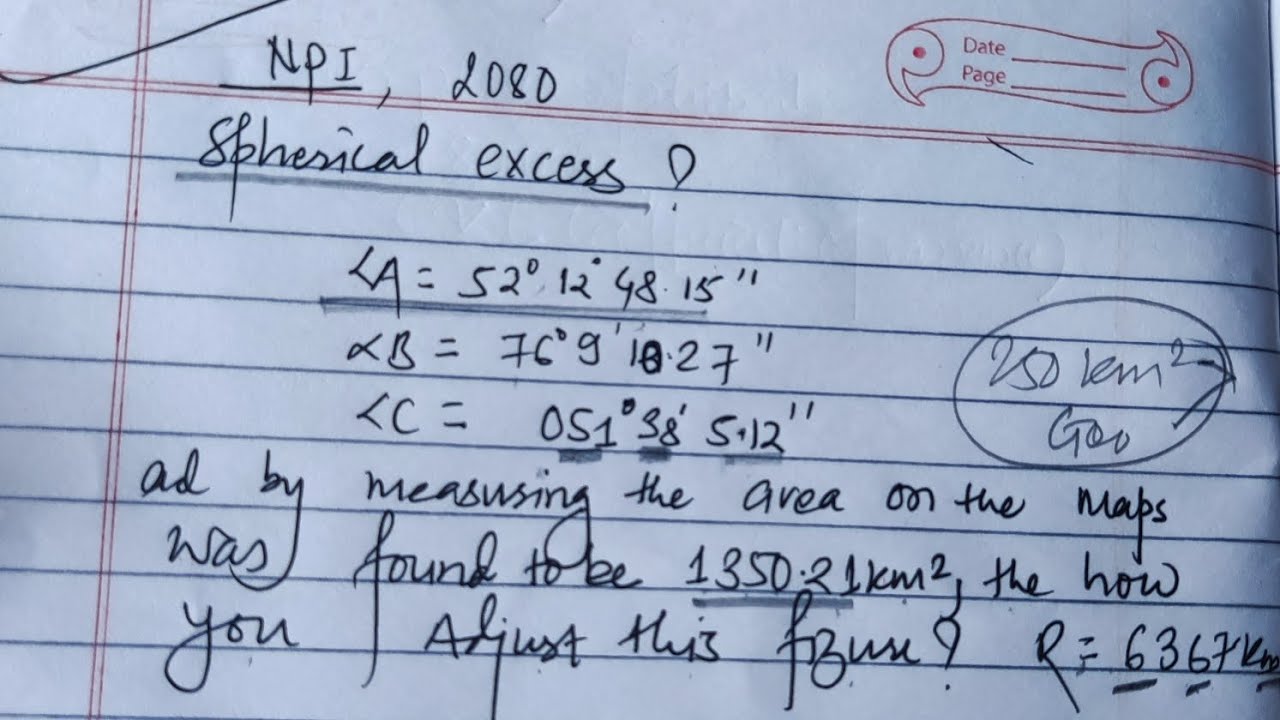 Date
Page
NPI, 2080
Spherical excess ?
<A = 52° 12° 48.15"
<B = 76° 9' 10.27"
<C = 051° 38' 5.12"
250 km²
Geo
ad by measuring the area on the maps
was found to be 1350.21 km², the how
you Adjust this figure? R = 6367 km